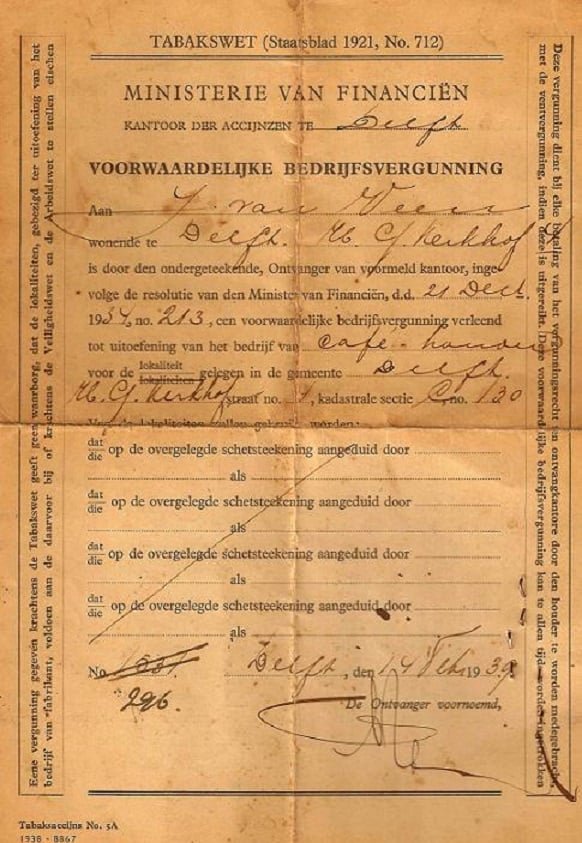 TABAKSWET (Staatsblad 1921, No. 712)
MINISTERIE VAN FINANCIËN
KANTOOR DER ACCIJNZEN TE Delft
VOORWAARDELIJKE BEDRIJFSVERGUNNING
Aan J. van Veen
wonende te Delft. H. G. Kerkhof 4
is door den ondergeteekende, Ontvanger van voormeld kantoor, inge-
volge de resolutie van den Minister van Financiën, d.d. 21 Dect.
1934, no. 213, een voorwaardelijke bedrijfsvergunning verleend
tot uitoefening van het bedrijf van café-houder
voor de lokaliteit gelegen in de gemeente Delft.
lokaliteiten
H. G. Kerkhof straat no. 4, kadastrale sectie C no. 130
Voor de lokaliteiten zullen gebruikt worden:
dat
die op de overgelegde schetsteekening aangeduid door
als
dat
die op de overgelegde schetsteekening aangeduid door
als
dat
die op de overgelegde schetsteekening aangeduid door
als
dat
die op de overgelegde schetsteekening aangeduid door
als
No. Delft, den 14 Feb. 1939
296.
De Ontvanger voornoemd,
Eene vergunning gegeven krachtens de Tabakswet geeft geen waarborg, dat de lokaliteiten, gebezigd ter uitoefening van het
bedrijf van fabrikant, voldoen aan de daarvoor bij of krachtens de Veiligheidswet en de Arbeidswet te stellen eischen
Deze vergunning dient bij elke betaling van het vergunningsrecht ten ontvangkantore door den houder te worden medegebracht,
met de ventvergunning, indien deze is uitgereikt. Deze voorwaardelijke bedrijfsvergunning kan te allen tijde worden ingetrokken
Tabaksaccijns No. 5A
1938 - 8867